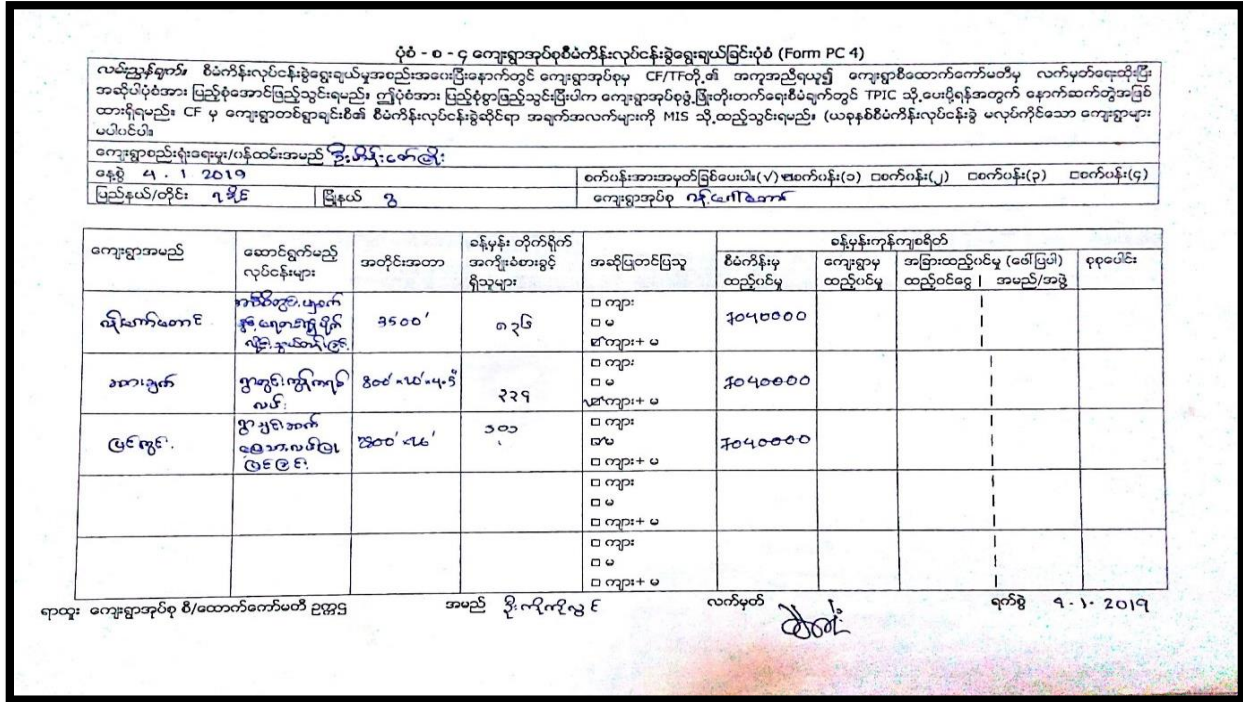 ပုံစံ - စ - ၄ ကျေးရွာအုပ်စုစီမံကိန်းလုပ်ငန်းခွဲရွေးချယ်ခြင်းပုံစံ (Form PC 4)
လမ်းညွှန်ချက်။ စီမံကိန်းလုပ်ငန်းခွဲရွေးချယ်မှုအစည်းအဝေးပြီးနောက်တွင် ကျေးရွာအုပ်စုမှ CF/TFတို့၏ အကူအညီရယူ၍ ကျေးရွာစီထောက်ကော်မတီမှ လက်မှတ်ရေးထိုးပြီး
အဆိုပါပုံစံအား ပြည့်စုံအောင်ဖြည့်သွင်းရမည်။ ဤပုံစံအား ပြည့်စုံစွာဖြည့်သွင်းပြီးပါက ကျေးရွာအုပ်စုဖွံ့ဖြိုးတိုးတက်ရေးစီမံချက်တွင် TPIC သို့ပေးပို့ရန်အတွက် နောက်ဆက်တွဲအဖြစ်
ထားရှိရမည်။ CF မှ ကျေးရွာတစ်ရွာချင်းစီ၏ စီမံကိန်းလုပ်ငန်းခွဲဆိုင်ရာ အချက်အလက်များကို MIS သို့ထည့်သွင်းရမည်။ (ယခုနှစ်စီမံကိန်းလုပ်ငန်းခွဲ မလုပ်ကိုင်သော ကျေးရွာများ
မပါဝင်ပါ။
ကျေးရွာစည်းရုံးရေးမှူး/ဝန်ထမ်းအမည် ဦး
နေ့စွဲ 4 . 1 2019 စက်ဝန်းအားအမှတ်ခြစ်ပေးပါ။(√) စက်ဝန်း(၁) □စက်ဝန်း(၂) □စက်ဝန်း(၃) □စက်ဝန်း(၄)
ပြည်နယ်/တိုင်း ရခိုင် မြို့နယ် ဂွ ကျေးရွာအုပ်စု
ကျေးရွာအမည် ဆောင်ရွက်မည့် လုပ်ငန်းများ အတိုင်းအတာ ခန့်မှန်း တိုက်ရိုက် အကျိုးခံစားခွင့် ရှိသူများ အဆိုပြုတင်ပြသူ ခန့်မှန်းကုန်ကျစရိတ်
စီမံကိန်းမှ ထည့်ဝင်မှု ကျေးရွာမှ ထည့်ဝင်မှု အခြားထည့်ဝင်မှု (ဖော်ပြပါ) ထည့်ဝင်ငွေ | အမည်/အဖွဲ့ စုစုပေါင်း
3500' ၈၃၆ □ ကျား □ မ ☑ ကျား+ မ 7040000
ရွာတွင်း ကွန်ကရစ် လမ်း ၃၃၄ □ ကျား □ မ ☑ ကျား+ မ 7040000
ပြင်ကွင်း ၁၀၁ □ ကျား ☑ မ □ ကျား+ မ 7040000
□ ကျား □ မ □ ကျား+ မ
□ ကျား □ မ □ ကျား+ မ
ရာထူး ကျေးရွာအုပ်စု စီ/ထောက်ကော်မတီ ဥက္ကဋ္ဌ အမည် ဦးကိုကိုလွင် လက်မှတ် ရက်စွဲ 4 . 1 . 2019